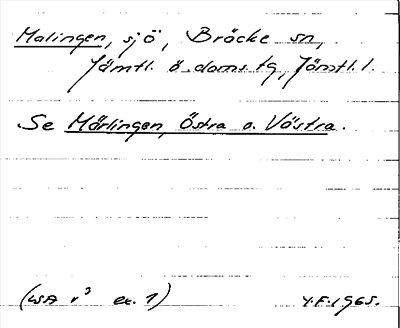 Malingen, sjö, Bräcke sn,
Jämtl. ö. doms. tg, Jämtl. l.
Se Mörlingen, Östra o. Västra.
(WSA r³ ex. 1) Y.F. 1965.